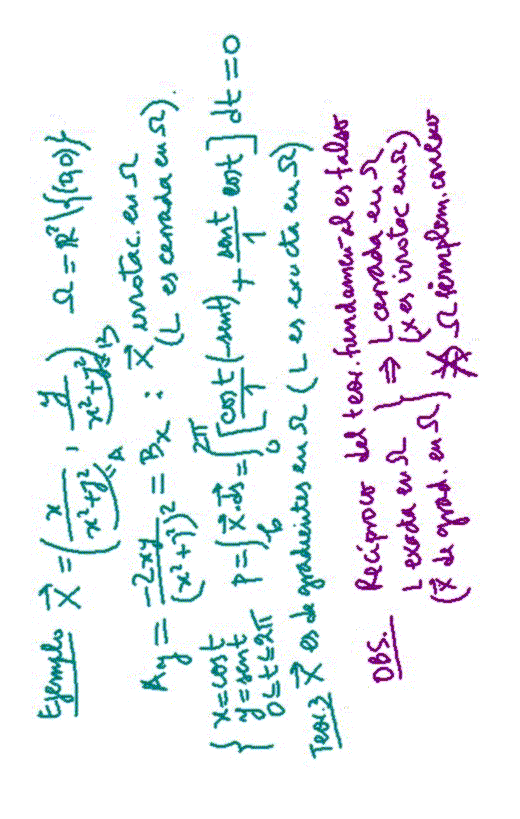 Ejemplo X⃗ = ( x / (x²+y²) , y / (x²+y²) ) Ω = ℝ² \ {(0,0)}
=A =B
A_y = -2xy / (x²+y²)² = B_x : X⃗ irrotac. en Ω
(L es cerrada en Ω).
{ x=cost
y=sent
0≤t≤2π
p = ∫_b X⃗·ds = ∫_0^{2π} [ cost/1 (-sent) + sent/1 cost ] dt = 0
Teor.3 X⃗ es de gradientes en Ω (L es exacta en Ω)
OBS. Recíproco del teor. fundamental es falso
L exacta en Ω } ⇒ L cerrada en Ω
(X⃗ de grad. en Ω) (X es irrotac en Ω)
⇍ Ω simplem. conexo